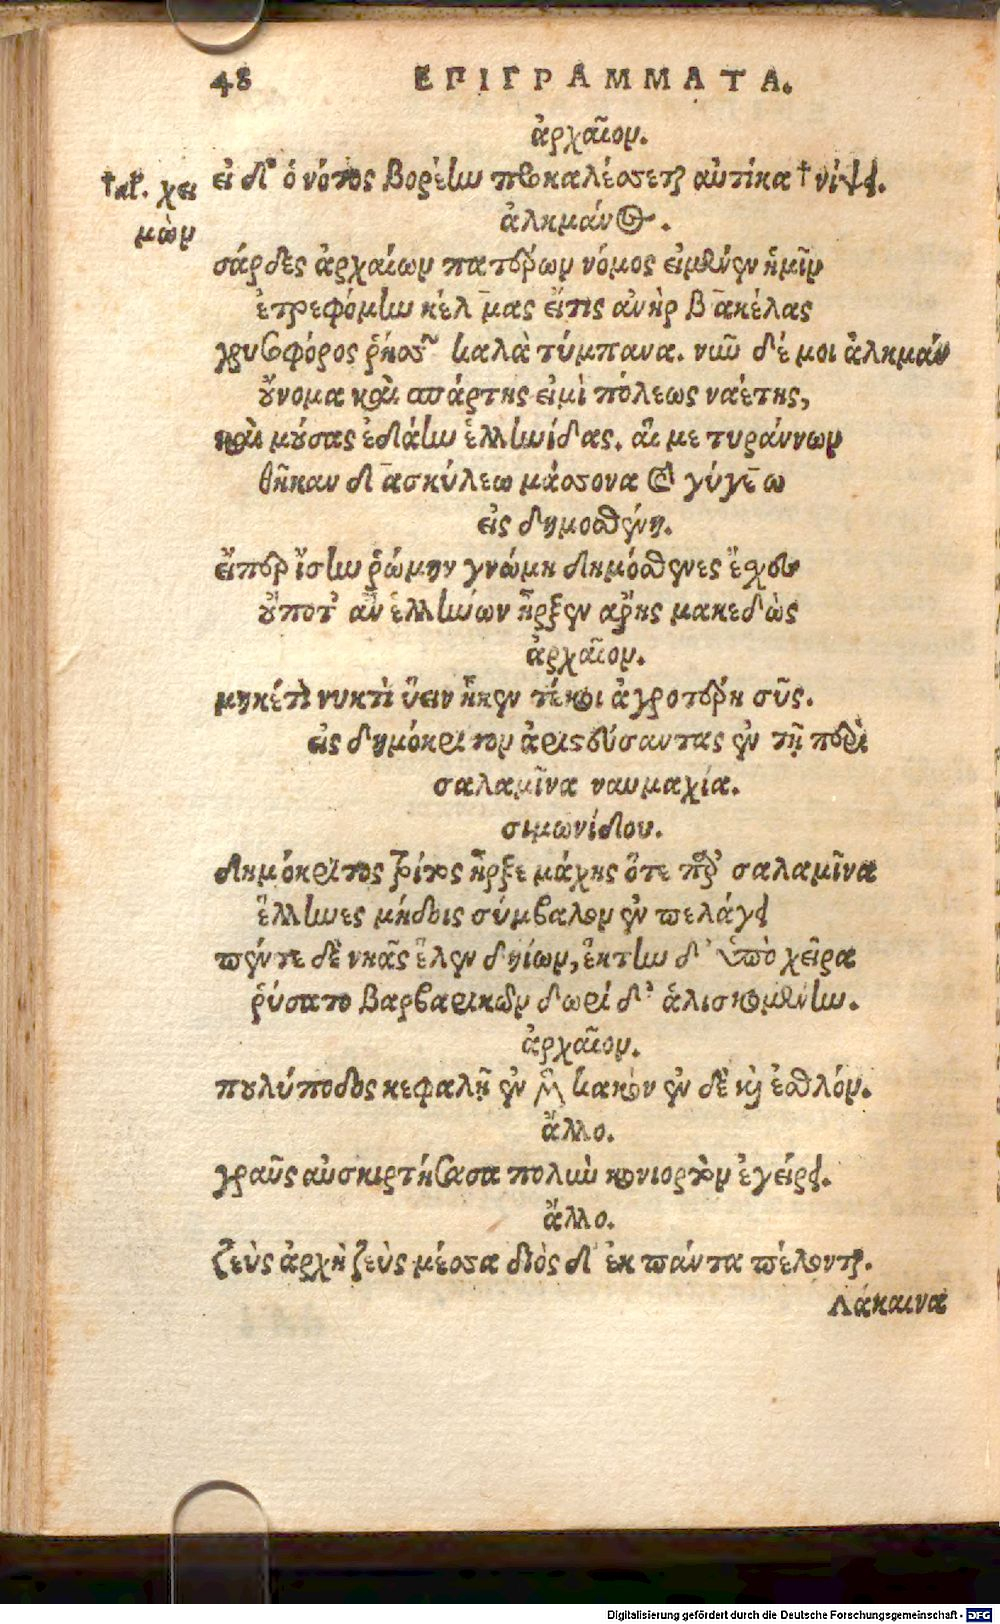 48 ΕΠΙΓΡΑΜΜΑΤΑ.
ἀρχαῖον.
εἰ δ' ὁ νότος βορέην προκαλέσσεται αὐτίκα † νίψει.
† χει
μὼν
ἀλκμάνος.
σάρδες ἀρχαίων πατέρων νόμος εἰ μὲν ἐν ἡμῖν
ἐτρεφόμην κέλ μας εἴτις ἀνὴρ βακέλας
χρυσοφόρος ῥήσσων καλὰ τύμπανα. νῦν δέ μοι ἀλκμάν
οὔνομα καὶ σπάρτης εἰμὶ πόλεως ναέτης,
καὶ μούσας ἐδάην ἑλληνίδας. αἵ με τυράννων
θῆκαν δ ασκύλεω μάσσονα καὶ γύγεω
εἰς δημοσθένη.
εἴπερ ἴσην ῥώμην γνώμη δημόσθενες ἔχες
οὔποτ' ἂν ἑλλήνων ἦρξεν ἄρης μακεδὼς
ἀρχαῖον.
μηκέτι νυκτὶ ὕειν ἧκεν τέκοι ἀγροτέρη σῦς.
εἰς δημόκριτον ἀριστεύσαντας ἐν τῇ περὶ
σαλαμῖνα ναυμαχία.
σιμωνίδου.
δημόκριτος τρίτος ἦρξε μάχης ὅτε πὰρ σαλαμῖνα
ἕλληνες μήδοις σύμβαλον ἐν πελάγει
πέντε δὲ νηᾶς ἕλεν δηίων, ἕκτην δ' ὑπὸ χεῖρα
ῥύσατο βαρβαρικῶν δωρίδ' ἁλισκομένην.
ἀρχαῖον.
πουλύποδος κεφαλῇ ἐν μὲν κακὸν ἐν δὲ καὶ ἐσθλόν.
ἄλλο.
γραῦς αὖ σκιρτήσασα πολὺν κονιορτὸν ἐγείρει.
ἄλλο.
ζεὺς ἀρχὴ ζεὺς μέσσα διὸς δ' ἐκ πάντα πέλονται.
Λάκαινα
Digitalisierung gefördert durch die Deutsche Forschungsgemeinschaft - DFG